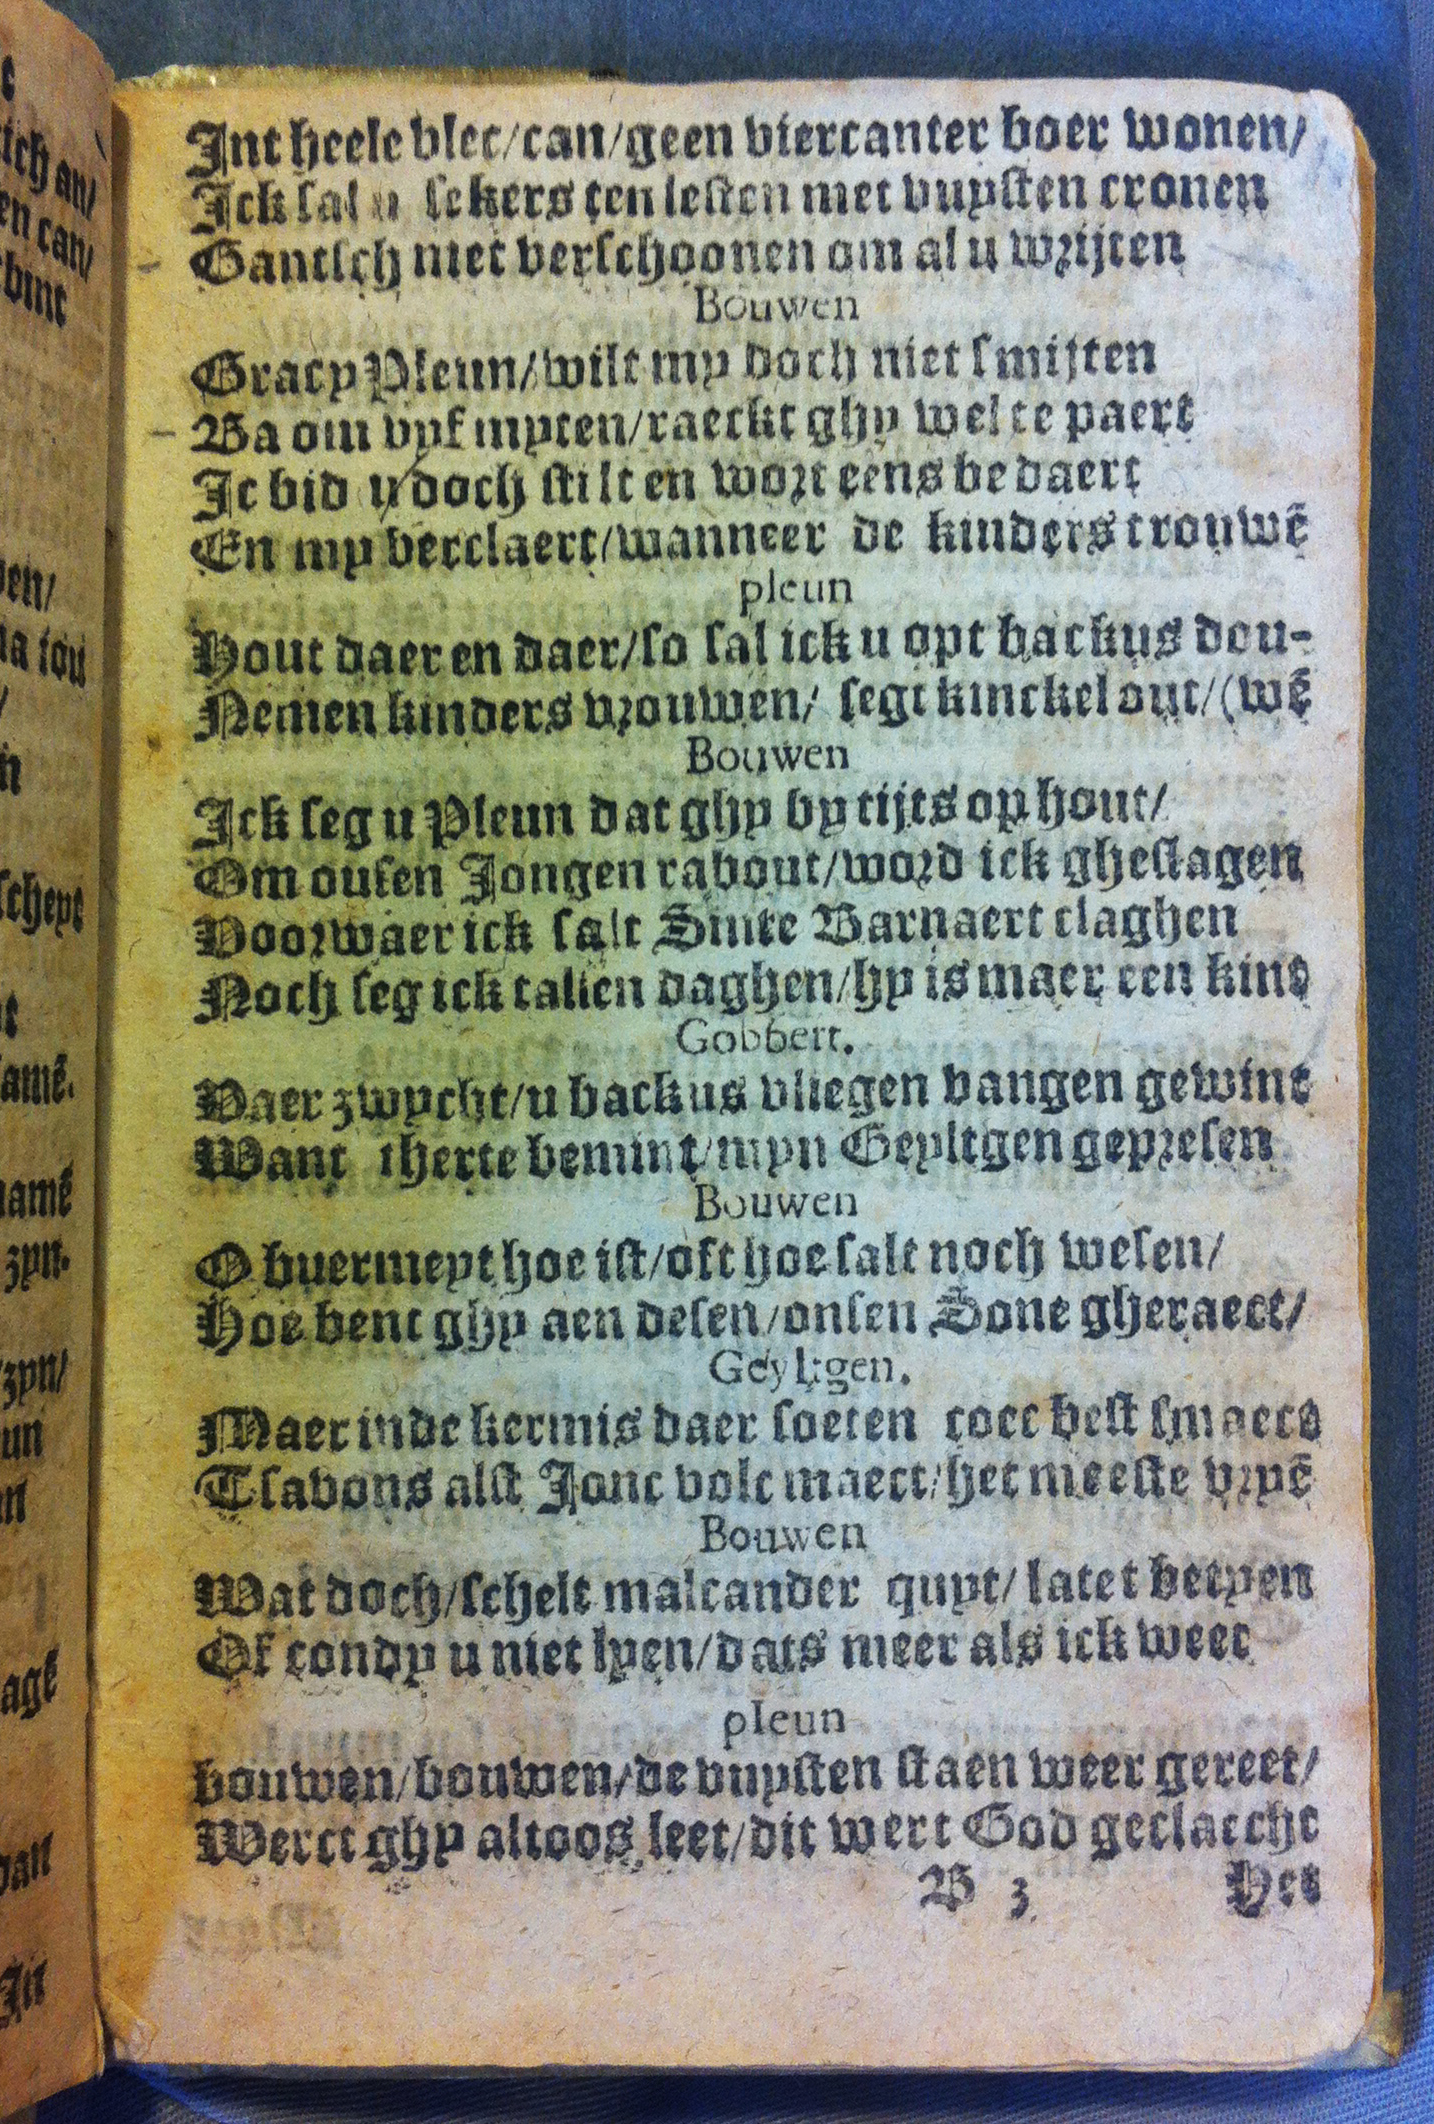 Int heele vlec/can/geen viercanter boer wonen/
Ick sal u sekers ten lesten met vuysten cronen
Gantsch niet verschoonen om al u wrijten
Bouwen
Gracy Pleun/wilt my doch niet smijten
Ba om vyf myten/raeckt ghy wel te paert
Ic bid u doch stilt en wort eens bedaert
En my verclaert/wanneer de kinders trouwē
pleun
Hout daer en daer/so sal ick u opt backus dou-
Nemen kinders vrouwen/ segt kinckel out/(wē
Bouwen
Ick seg u Pleun dat ghy by tijts op hout/
Om ousen Jongen rabout/word ick gheslagen
Voorwaer ick salt Sinte Barnaert claghen
Noch seg ick tallen daghen/hy is maer een kind
Gobbert.
Vaer zwycht/u backus vliegen vangen gewint
Want therte bemint/myn Geyltgen gepresen
Bouwen
O buermeyt hoe ist/oft hoe salt noch wesen/
Hoe bent ghy aen desen/onsen Sone gheraect/
Geyltgen.
Maer inde kermis daer soeten coec best smaect
Tsavons alst Jonc volc maect/het meeste vryē
Bouwen
Wat doch/schelt malcander quyt/ latet betyen
Of condy u niet lyen/dats meer als ick weet
pleun
bouwen/bouwen/de vuysten staen weer gereet/
Werct ghy altoos leet/dit wert God geclaecht
B 3 Het
ich an/
en can/
vint
en/
schept
amē.
namē
zyn.
zyn/
un
agē